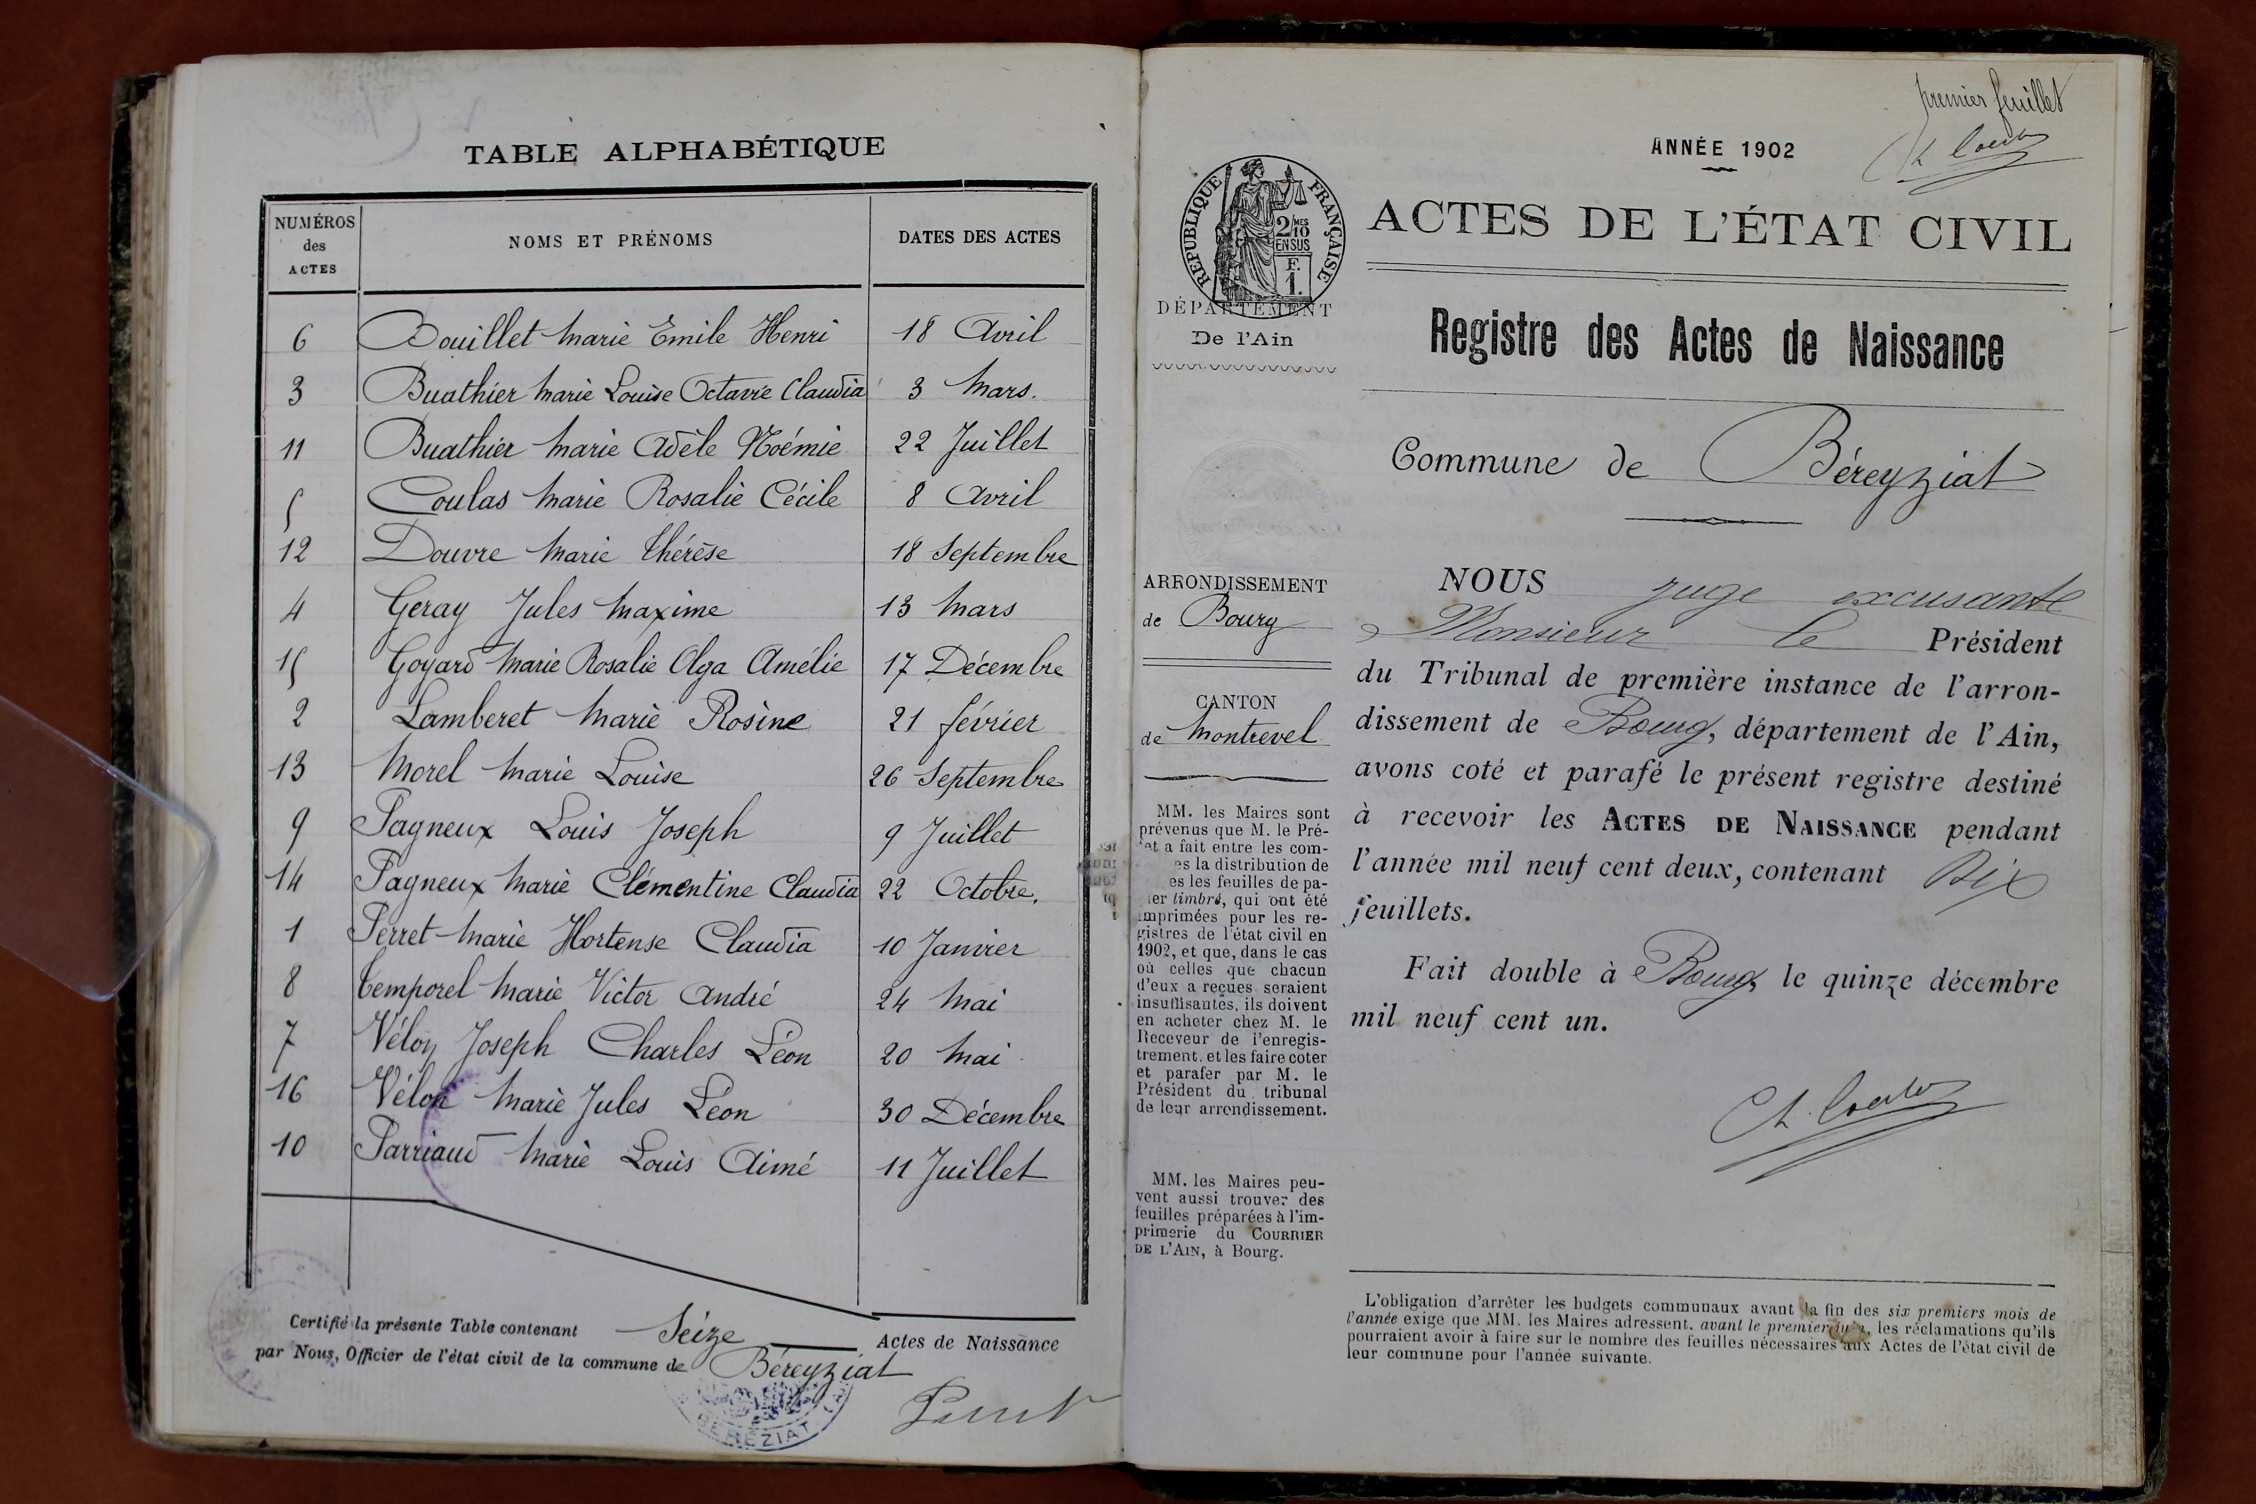 TABLE ALPHABÉTIQUE
NUMÉROS
des
ACTES
NOMS ET PRÉNOMS
DATES DES ACTES
6 Douillet Marie Emile Henri 18 Avril
3 Buathier Marie Louise Octavie Claudia 3 Mars.
11 Buathier Marie Adèle Noémie 22 Juillet
5 Coulas Marie Rosalie Cécile 8 Avril
12 Douvre Marie Thérèse 18 Septembre
4 Geray Jules Maxime 13 Mars
15 Goyard Marie Rosalie Olga Amélie 17 Décembre
2 Lamberet Marie Rosine 21 février
13 Morel Marie Louise 26 Septembre
9 Pagneux Louis Joseph 9 Juillet
14 Pagneux Marie Clémentine Claudia 22 Octobre.
1 Perret Marie Hortense Claudia 10 Janvier
8 Temporel Marie Victor André 24 Mai
7 Vélon Joseph Charles Léon 20 Mai
16 Vélon Marie Jules Léon 30 Décembre
10 Parriaud Marie Louis Aimé 11 Juillet
Certifié la présente Table contenant Seize Actes de Naissance
par Nous, Officier de l'état civil de la commune de Béreyziat
Perret
BÉRÉZIAT
premier feuillet
ANNÉE 1902
RÉPUBLIQUE FRANÇAISE
2/10 MES
EN SUS
F.
1.
ACTES DE L'ÉTAT CIVIL
DÉPARTEMENT
De l'Ain
Registre des Actes de Naissance
Commune de Béreyziat
ARRONDISSEMENT
de Bourg
CANTON
de Montrevel
MM. les Maires sont
prévenus que M. le Pré-
et a fait entre les com-
es la distribution de
es les feuilles de pa-
ier timbré, qui ont été
imprimées pour les re-
gistres de l'état civil en
1902, et que, dans le cas
où celles que chacun
d'eux a reçues seraient
insuffisantes, ils doivent
en acheter chez M. le
Receveur de l'enregis-
trement, et les faire coter
et parafer par M. le
Président du tribunal
de leur arrondissement.
MM. les Maires peu-
vent aussi trouver des
feuilles préparées à l'im-
primerie du COURRIER
DE L'AIN, à Bourg.
NOUS juge excusant
Monsieur le Président
du Tribunal de première instance de l'arron-
dissement de Bourg, département de l'Ain,
avons coté et parafé le présent registre destiné
à recevoir les ACTES DE NAISSANCE pendant
l'année mil neuf cent deux, contenant Six
feuillets.
Fait double à Bourg, le quinze décembre
mil neuf cent un.
L'obligation d'arrêter les budgets communaux avant la fin des six premiers mois de
l'année exige que MM. les Maires adressent, avant le premier juin, les réclamations qu'ils
pourraient avoir à faire sur le nombre des feuilles nécessaires aux Actes de l'état civil de
leur commune pour l'année suivante.